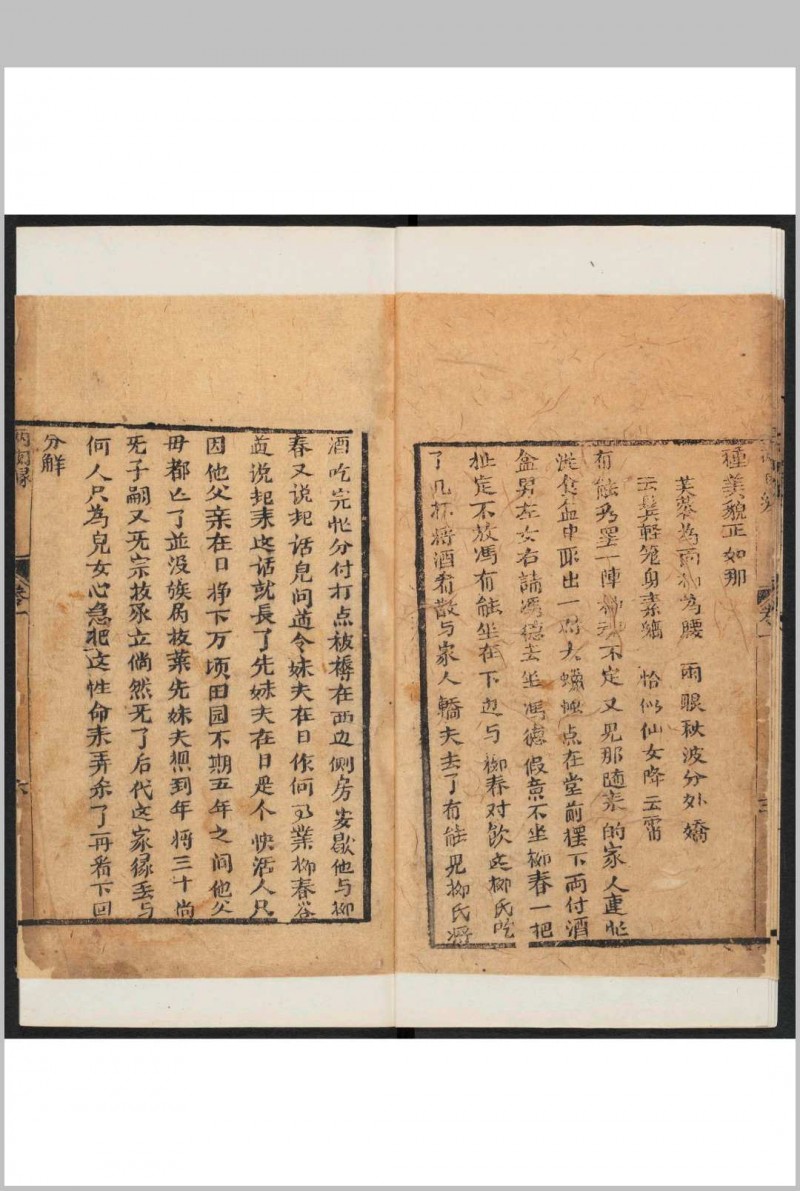 種美貌正如那
芙蓉為面柳為腰 兩眼秋波分外嬌
云鬓軽籠身素縞 恰似仙女降云霄
有能為罣一陣柳春不定又見那随来的家人連忙
従食盒中取出一對大蠟燭点在堂前摆下両付酒
盒男左女右請馮德去坐馮德假意不坐柳春一把
扯定不放馮有能坐在下边与柳春对飲这柳氏吃
了几杯將酒肴散与家人轎夫去了有能見柳氏將
酒吃完忙分付打点被褥在西边侧房安歇他与柳
春又说起话兒问道令妹夫在日作何乃業柳春答
道说起来这话就長了先妹夫在日是个快活人只
因他父亲在日挣下万顷田园不期五年之间他父
母都亡了並没族房枝葉先妹夫想到年将三十尚
旡子嗣又旡宗枝承立倘然死了后代这家缘丢与
何人只為兒女心急把这性命来弄杀了再看下回
分觧
卷一
六
卷一
三